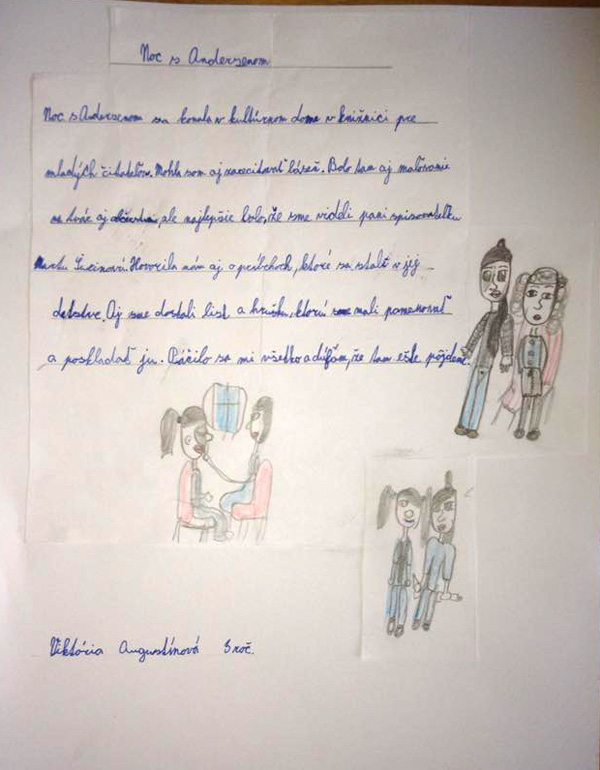 Noc s Andersenom
Noc s Andersenom sa konala v kultúrnom dome v knižnici pre
mladých čitateľov. Mohla som aj zarecitovať báseň. Bolo tam aj maľovanie
na tvár aj, ale najlepšie bolo, že sme videli pani spisovateľku
Martu Šurinovú. Hovorila nám aj o príbehoch, ktoré sa stali v jej
detstve. Aj sme dostali list a hrušku, ktorú sme mali pomenovať
a poskladať ju. Páčilo sa mi všetko a dúfam, že tam ešte pôjdem.
Viktória Augustínová 3 roč.